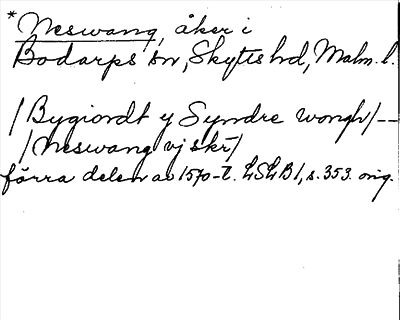 *Neswang, åker i
Bodarps sn, Skytts hd, Malm. l.
/Bygiordt y Syndre wongh/--
/Neswang vj skr/
förra delen av 1570-t. LSLB1, s. 353. orig.